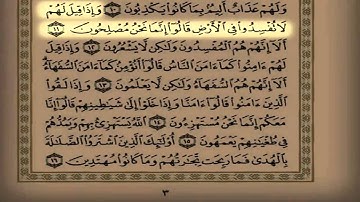 وَلَهُمْ عَذَابٌ أَلِيمٌ بِمَا كَانُوا يَكْذِبُونَ ١٠ وَإِذَا قِيلَ لَهُمْ
لَا تُفْسِدُوا فِي الْأَرْضِ قَالُوا إِنَّمَا نَحْنُ مُصْلِحُونَ ١١
أَلَا إِنَّهُمْ هُمُ الْمُفْسِدُونَ وَلَٰكِنْ لَا يَشْعُرُونَ ١٢ وَإِذَا قِيلَ
لَهُمْ آمِنُوا كَمَا آمَنَ النَّاسُ قَالُوا أَنُؤْمِنُ كَمَا آمَنَ السُّفَهَاءُ
أَلَا إِنَّهُمْ هُمُ السُّفَهَاءُ وَلَٰكِنْ لَا يَعْلَمُونَ ١٣ وَإِذَا لَقُوا
الَّذِينَ آمَنُوا قَالُوا آمَنَّا وَإِذَا خَلَوْا إِلَىٰ شَيَاطِينِهِمْ قَالُوا إِنَّا
مَعَكُمْ إِنَّمَا نَحْنُ مُسْتَهْزِئُونَ ١٤ اللَّهُ يَسْتَهْزِئُ بِهِمْ وَيَمُدُّهُمْ
فِي طُغْيَانِهِمْ يَعْمَهُونَ ١٥ أُولَٰئِكَ الَّذِينَ اشْتَرَوُا الضَّلَالَةَ
بِالْهُدَىٰ فَمَا رَبِحَتْ تِجَارَتُهُمْ وَمَا كَانُوا مُهْتَدِينَ ١٦
٣